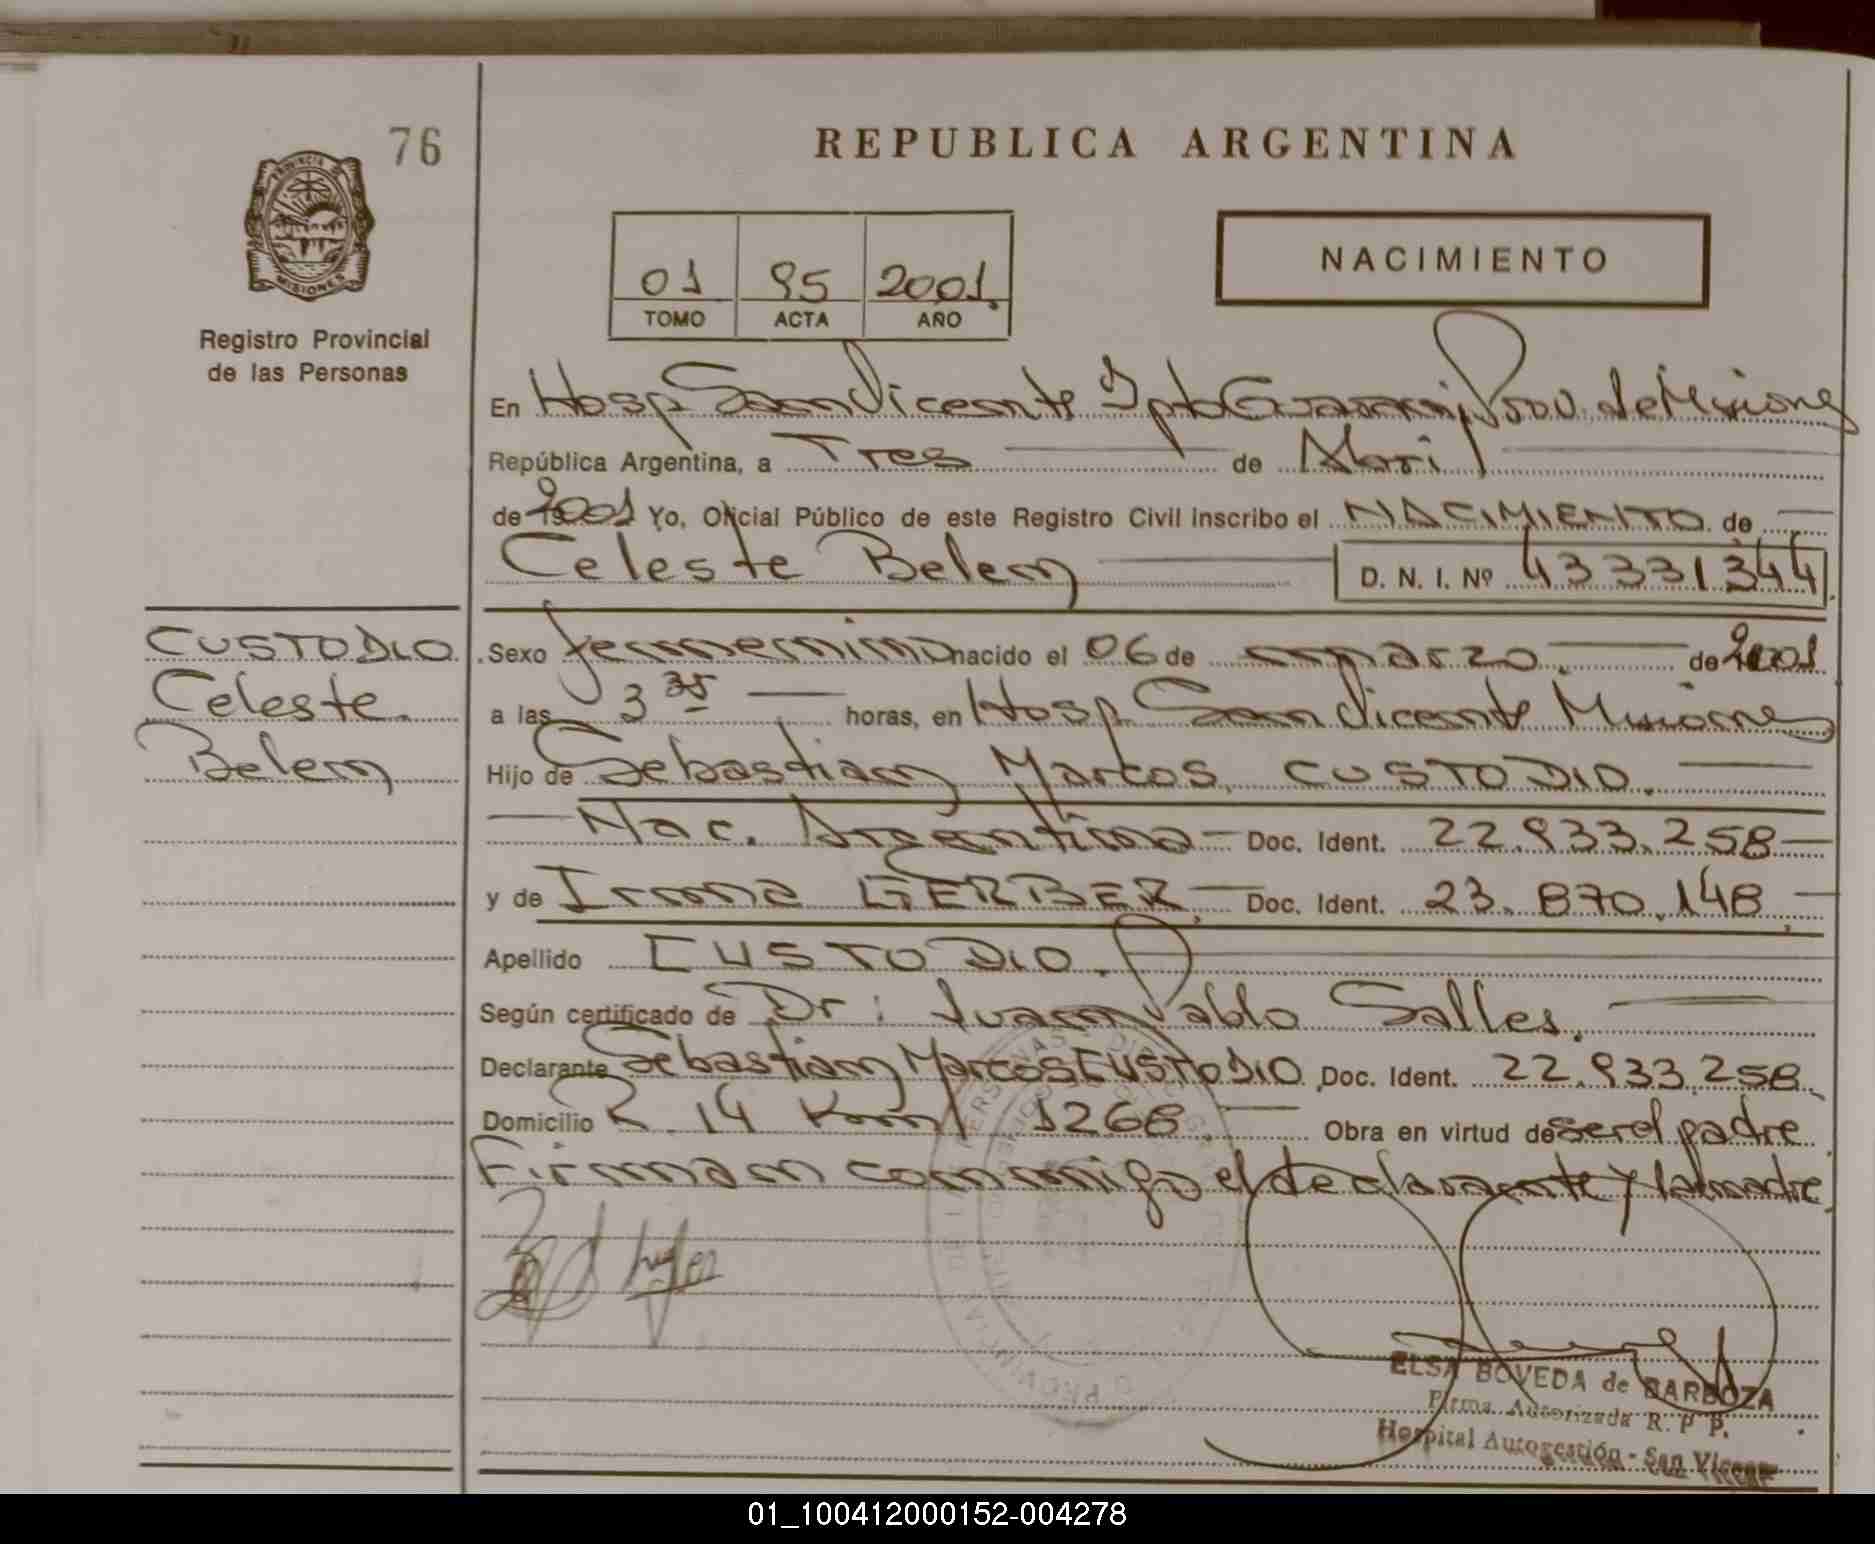 76
PROVINCIA DE
MISIONES
Registro Provincial
de las Personas
REPUBLICA ARGENTINA
01 95 2001.
TOMO ACTA AÑO
NACIMIENTO
En Hosp San Vicente Dpto Guarani, Prov. de Misiones
República Argentina, a Tres de Abril
de 2001 Yo, Oficial Público de este Registro Civil inscribo el NACIMIENTO de
Celeste Belem D. N. I. Nº 43331344
CUSTODIO
Celeste
Belem
Sexo femenino nacido el 06 de marzo. de 2001
a las 3 35 horas, en Hosp San Vicente Misiones
Hijo de Sebastian Marcos, CUSTODIO.
Nac. Argentina Doc. Ident. 22.933.258
y de Irma GERBER. Doc. Ident. 23.870.148
Apellido CUSTODIO.
Según certificado de Dr: Juan Pablo Salles.
Declarante Sebastian Marcos CUSTODIO Doc. Ident. 22.933.258
Domicilio R. 14 Km 1268. Obra en virtud de ser el padre
Firman conmigo el declarante y la madre
ELSA BOVEDA de BARBOZA
Firma Autorizada R. P P.
Hospital Autogestión - San Vicente
01_100412000152-004278